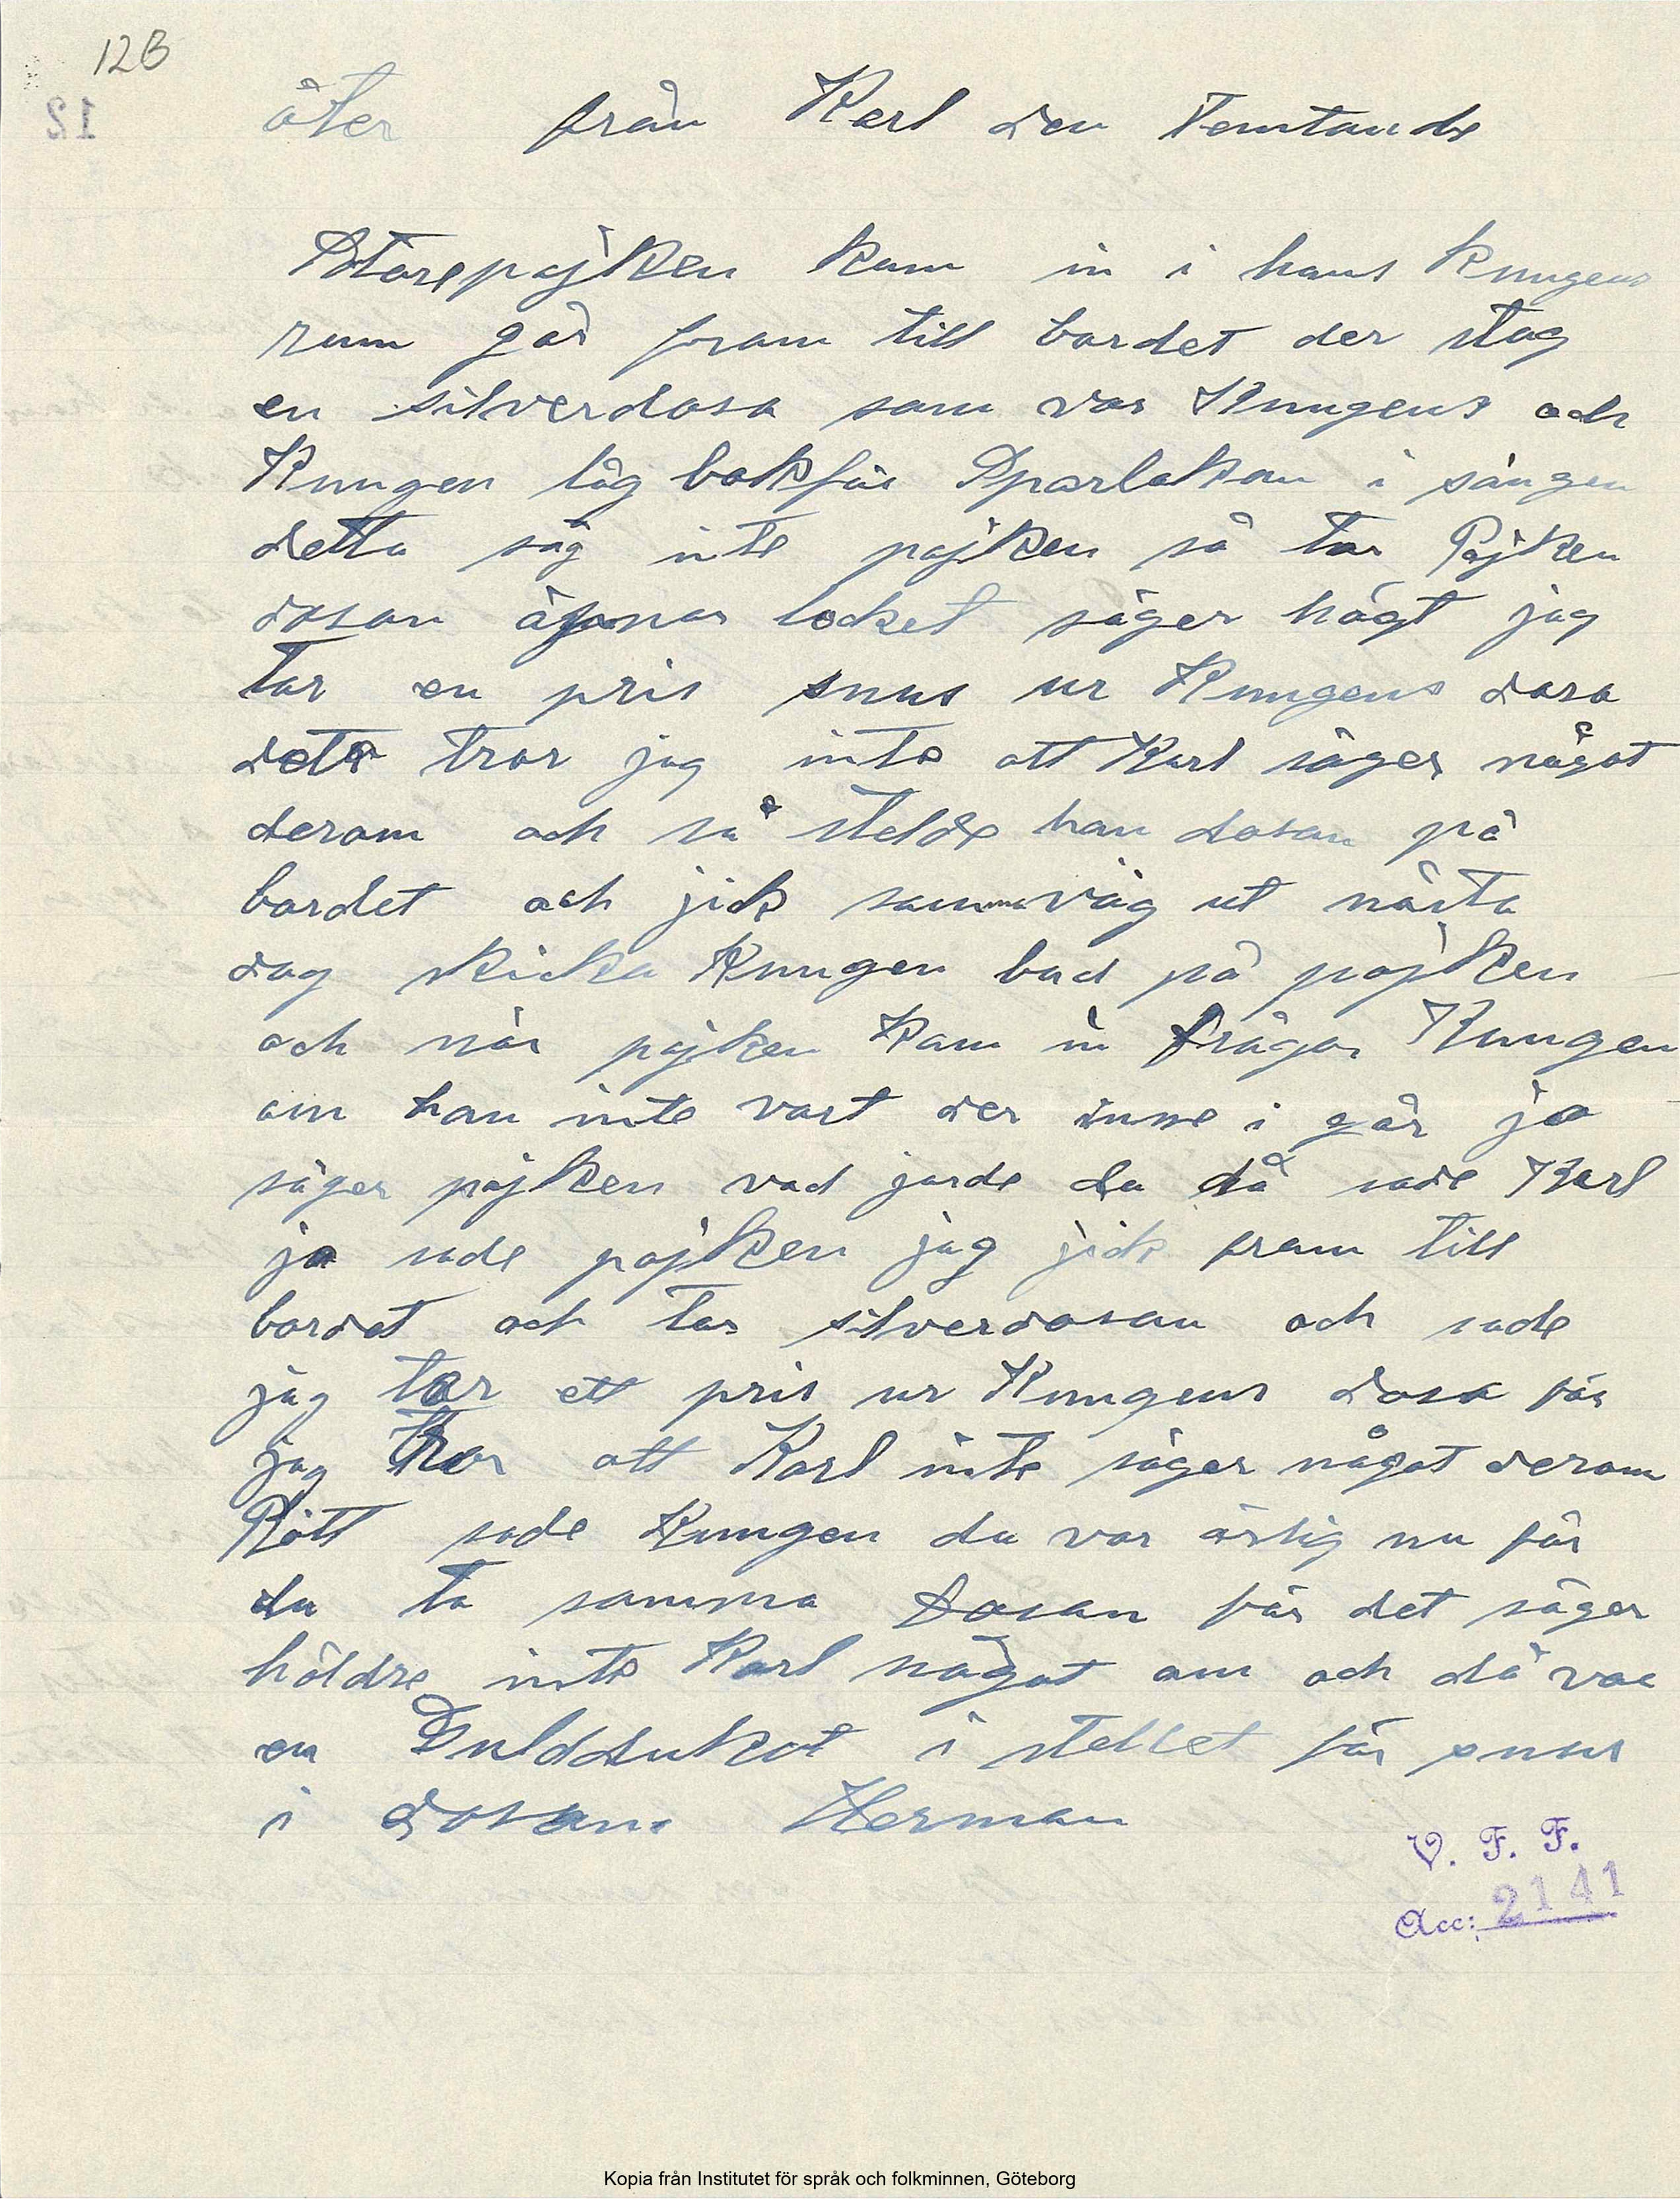 12B
åter från Karl den Femtande
pojken kom in i hans kungens
rum går fram till bordet der stog
en silverdosa som var Kungens och
Kungen låg bakför Sparlakan i sängen
detta såg inte pojken så tar Pojken
dosan äpnar locket säger högt jag
tar en pris snus ur Kungens dosa
dete tror jag inte att Karl säger något
derom och så stelde han dosan på
bordet och jick samma väg ut nästa
dag skicka Kungen bud på pojken
och när pojken kam in frågar Kungen
om han inte vart der inne i går ja
säger pojken vad jorde du då sade Karl
ja sade pojken jag jick fram till
bordet och tar silverdosan och sade
jag tar ett pris ur Kungens dosa för
jag tror att Karl inte säger något derom
Rätt sade Kungen du var ärlig nu får
du ta samma dosan för det säger
höldre inte Karl något om och då var
en Gulddukat i stellet för snus
i dosan. Herman
V. F. F.
Acc: 2141
Kopia från Institutet för språk och folkminnen, Göteborg